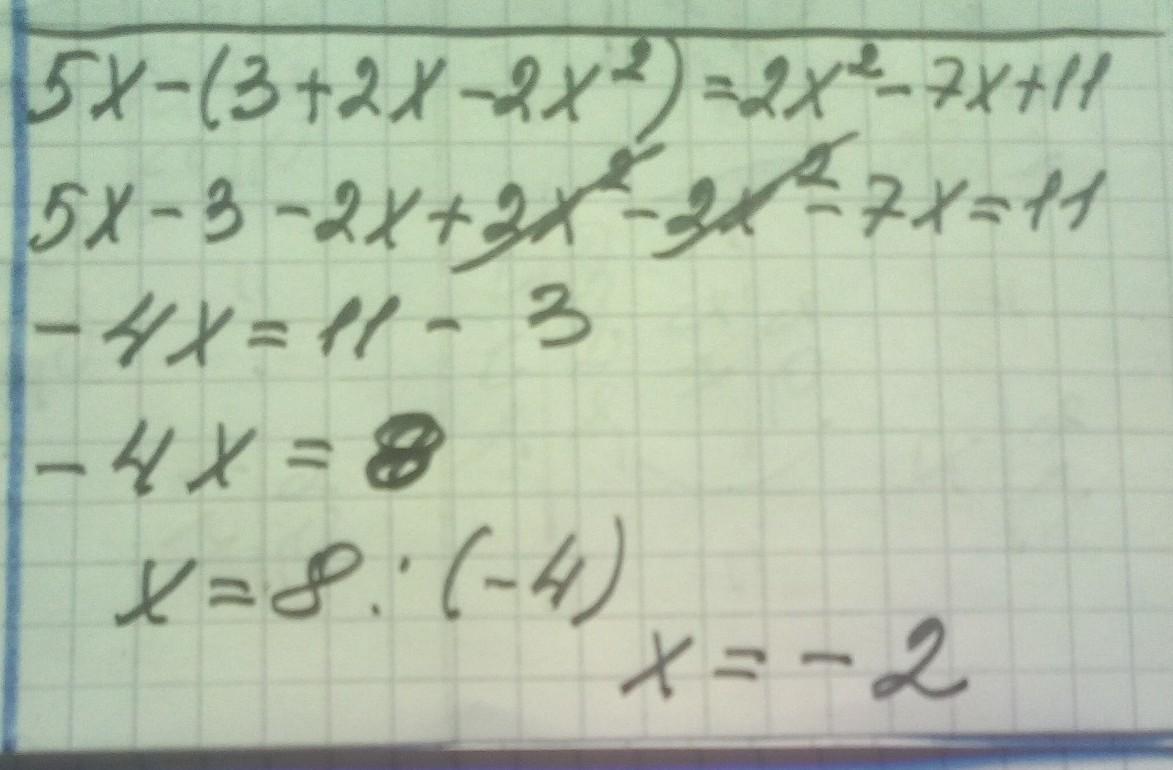 5x-(3+2x-2x²)=2x²-7x+11
5x-3-2x+2x²-2x²-7x=11
-4x=11-3
-4x=8
x=8:(-4)
x=-2